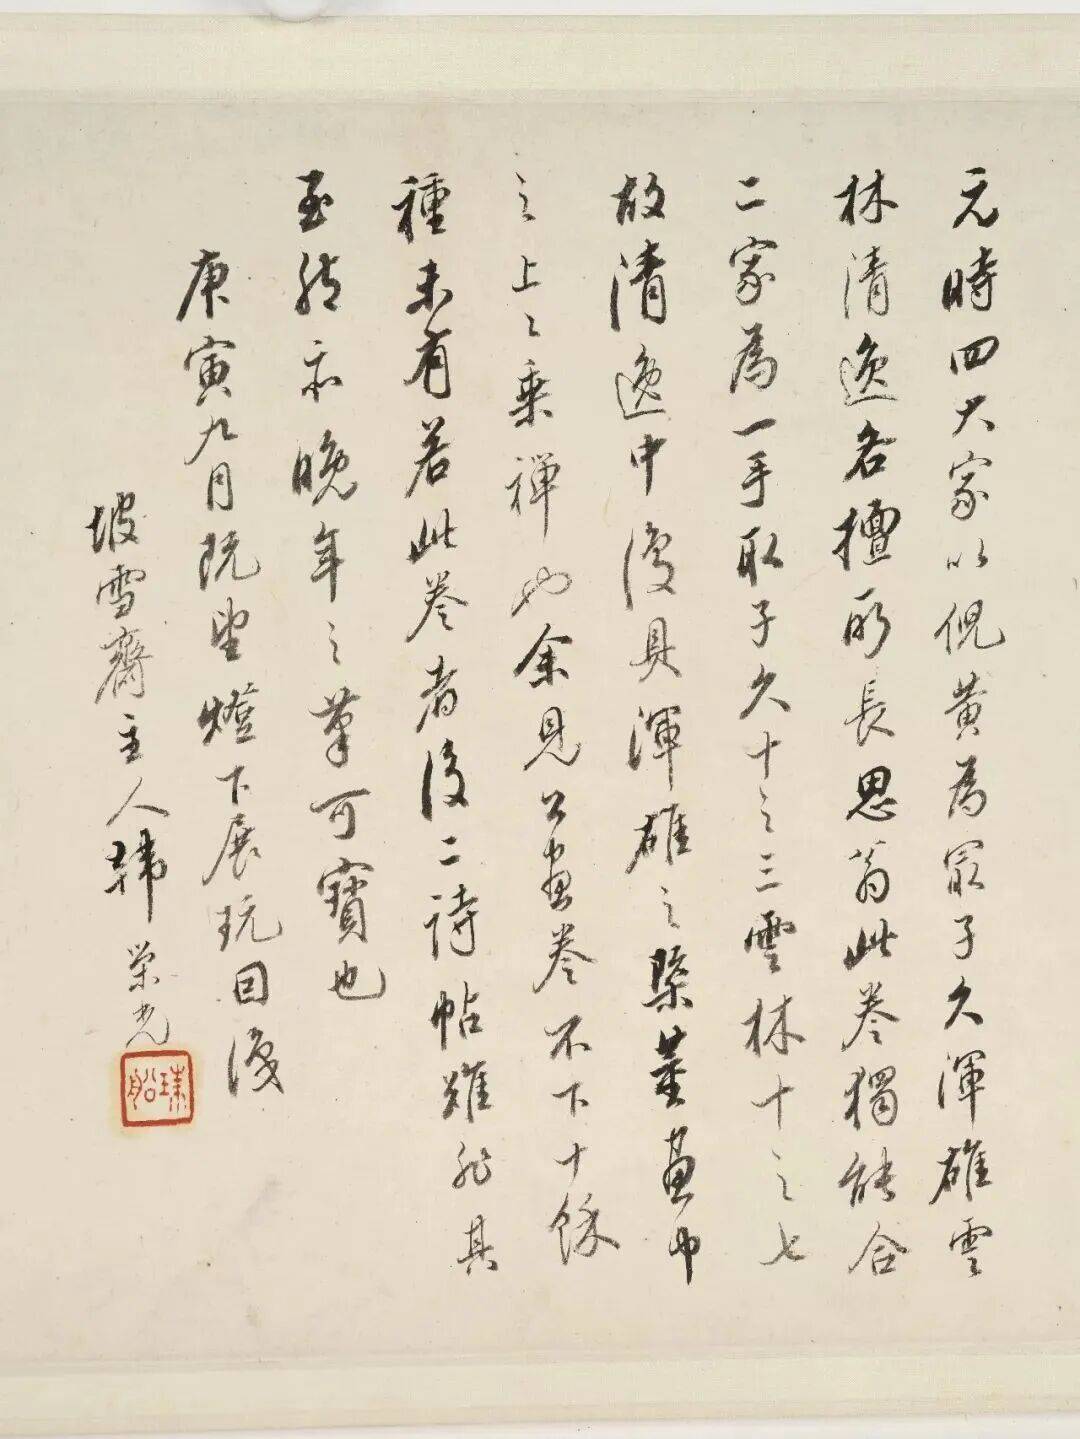 元時四大家以倪黄為冣子久渾雄雲
林清逸各擅所長思翁此卷獨能合
二家為一手取子久十之三雲林十之七
故清逸中復具渾雄之槩董畫中
之上上乘禪也余見公畫卷不下十餘
種未有若此卷者後二詩帖雖非其
至然亦晚年之筆可寶也
庚寅九月既望燈下展玩因識
坡雪齋主人韩榮光
珠船